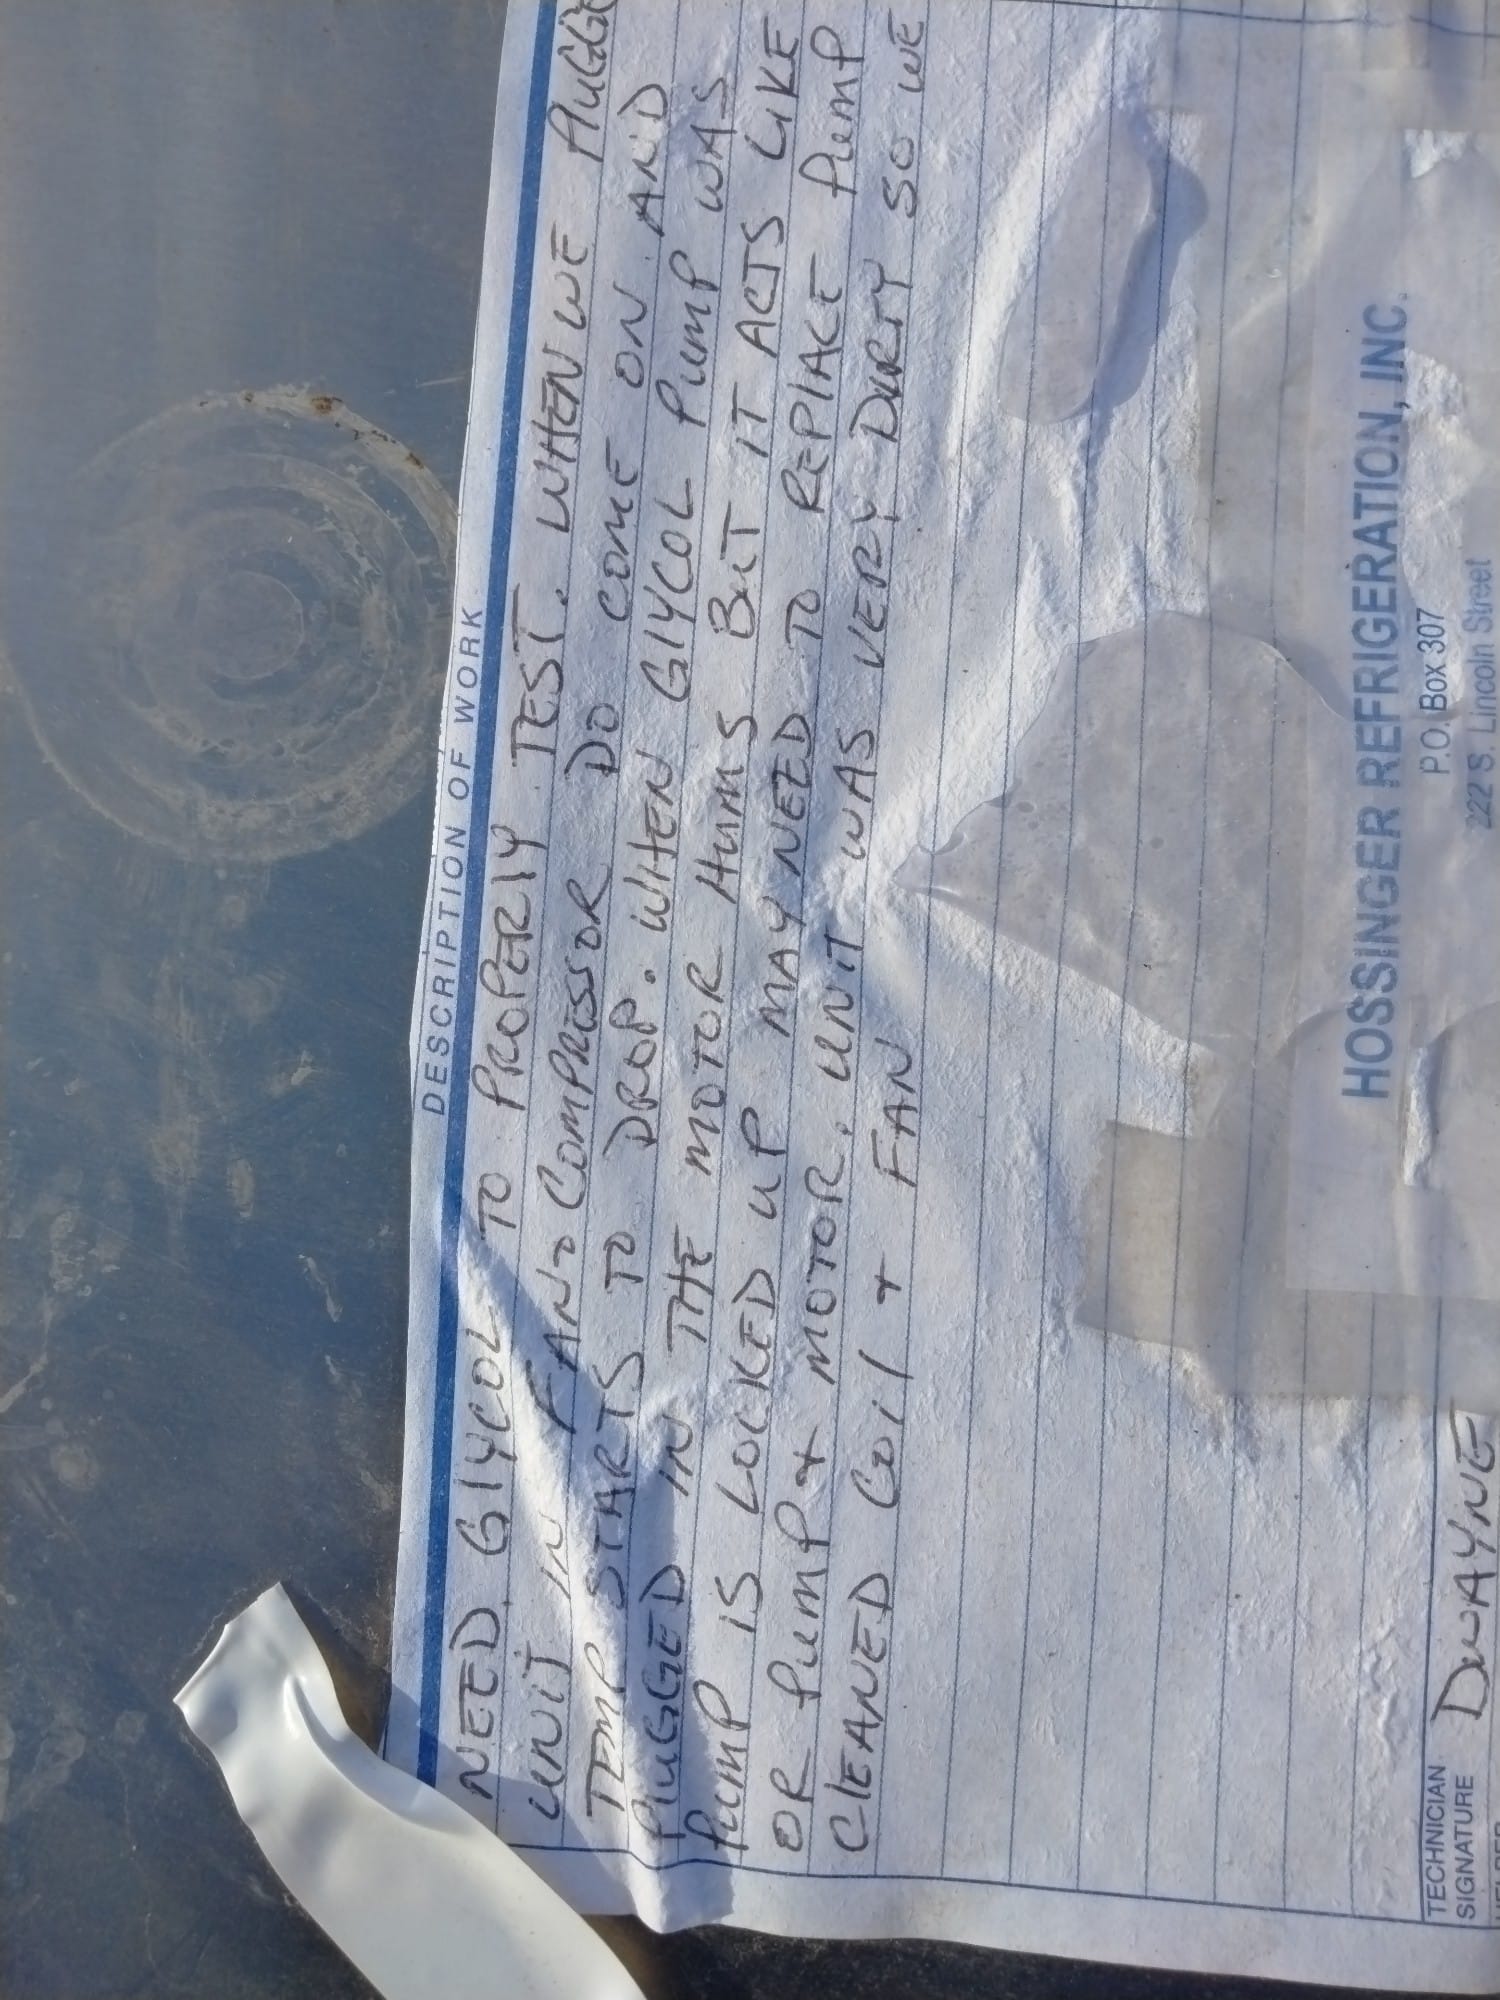 DESCRIPTION OF WORK
NEED GLYCOL TO PROPERLY TEST. WHEN WE PLUGGE
UNIT IN FAN & COMPRESSOR DO COME ON AND
TEMP STARTS TO DROP. WHEN GLYCOL PUMP WAS
PLUGGED IN THE MOTOR HUMS BUT IT ACTS LIKE
PUMP IS LOCKED UP MAY NEED TO REPLACE PUMP
OR PUMP & MOTOR. UNIT WAS VERY DURTY SO WE
CLEANED COIL & FAN
HOSSINGER REFRIGERATION, INC.
P.O. Box 307
222 S. Lincoln Street
TECHNICIAN
SIGNATURE DWAYNE